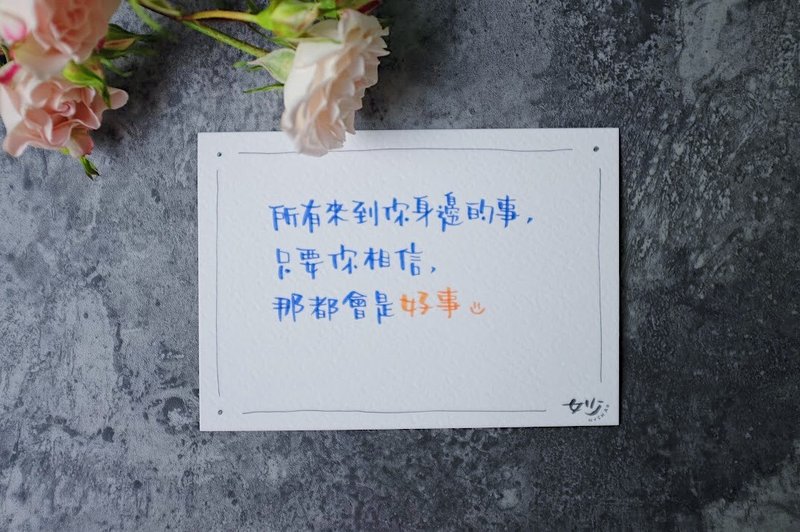 所有來到你身邊的事，
只要你相信，
那都會是好事
妙